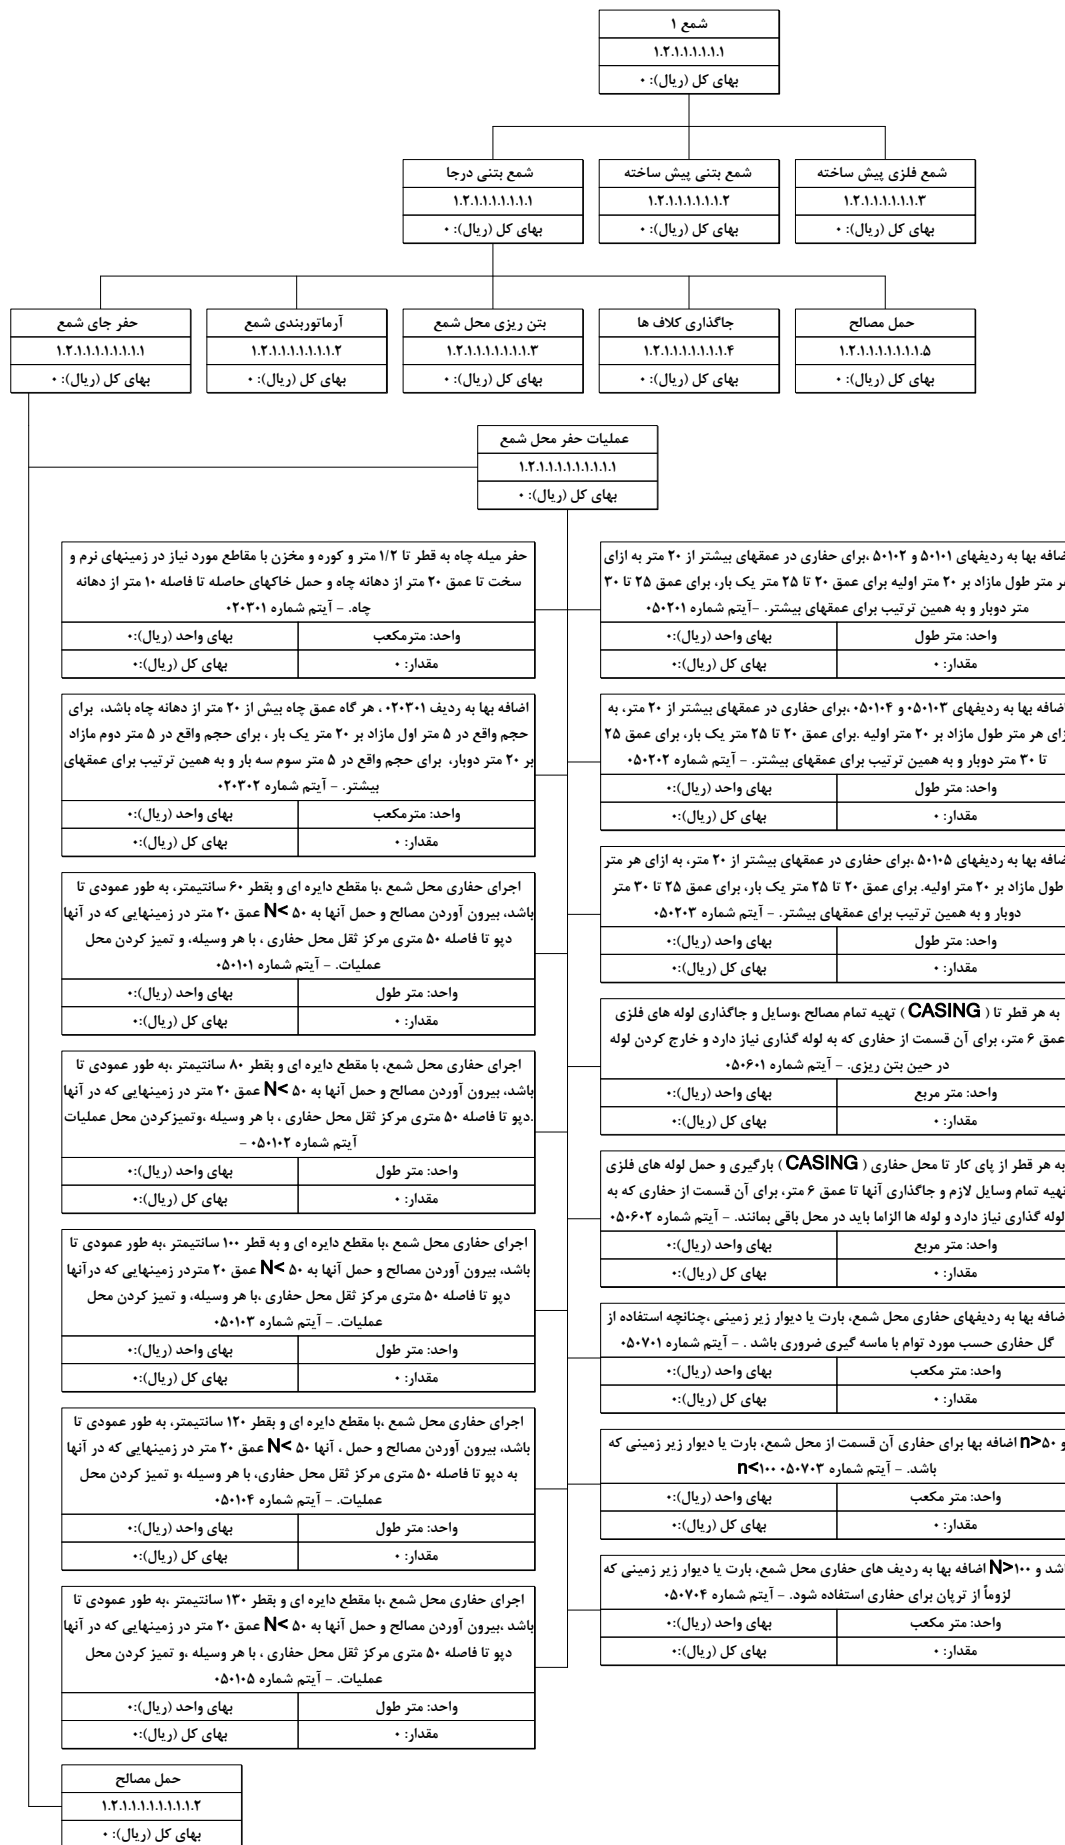 شمع ۱
۱.۲.۱.۱.۱.۱.۱.۱
بهای کل (ریال): ۰
شمع بتنی درجا
۱.۲.۱.۱.۱.۱.۱.۱.۱
بهای کل (ریال): ۰
شمع بتنی پیش ساخته
۱.۲.۱.۱.۱.۱.۱.۱.۲
بهای کل (ریال): ۰
شمع فلزی پیش ساخته
۱.۲.۱.۱.۱.۱.۱.۱.۳
بهای کل (ریال): ۰
حفر جای شمع
۱.۲.۱.۱.۱.۱.۱.۱.۱.۱
بهای کل (ریال): ۰
آرماتوربندی شمع
۱.۲.۱.۱.۱.۱.۱.۱.۱.۲
بهای کل (ریال): ۰
بتن ریزی محل شمع
۱.۲.۱.۱.۱.۱.۱.۱.۱.۳
بهای کل (ریال): ۰
جاگذاری کلاف ها
۱.۲.۱.۱.۱.۱.۱.۱.۱.۴
بهای کل (ریال): ۰
حمل مصالح
۱.۲.۱.۱.۱.۱.۱.۱.۱.۵
بهای کل (ریال): ۰
عملیات حفر محل شمع
۱.۲.۱.۱.۱.۱.۱.۱.۱.۱.۱
بهای کل (ریال): ۰
حفر میله چاه به قطر تا ۱/۲ متر و کوره و مخزن با مقاطع مورد نیاز در زمینهای نرم و
سخت تا عمق ۲۰ متر از دهانه چاه و حمل خاکهای حاصله تا فاصله ۱۰ متر از دهانه
چاه. - آیتم شماره ۰۲۰۳۰۱
واحد: مترمکعب
بهای واحد (ریال):۰
مقدار: ۰
بهای کل (ریال):۰
اضافه بها به ردیف ۰۲۰۳۰۱ ، هر گاه عمق چاه بیش از ۲۰ متر از دهانه چاه باشد، برای
حجم واقع در ۵ متر اول مازاد بر ۲۰ متر یک بار ، برای حجم واقع در ۵ متر دوم مازاد
بر ۲۰ متر دوبار، برای حجم واقع در ۵ متر سوم سه بار و به همین ترتیب برای عمقهای
بیشتر. - آیتم شماره ۰۲۰۳۰۲
واحد: مترمکعب
بهای واحد (ریال):۰
مقدار: ۰
بهای کل (ریال):۰
اجرای حفاری محل شمع ،با مقطع دایره ای و بقطر ۶۰ سانتیمتر، به طور عمودی تا
باشد، بیرون آوردن مصالح و حمل آنها به ۵۰ >N عمق ۲۰ متر در زمینهایی که در آنها
دپو تا فاصله ۵۰ متری مرکز ثقل محل حفاری ، با هر وسیله، و تمیز کردن محل
عملیات. - آیتم شماره ۰۵۰۱۰۱
واحد: متر طول
بهای واحد (ریال):۰
مقدار: ۰
بهای کل (ریال):۰
اجرای حفاری محل شمع، با مقطع دایره ای و بقطر ۸۰ سانتیمتر ،به طور عمودی تا
باشد، بیرون آوردن مصالح و حمل آنها به ۵۰ >N عمق ۲۰ متر در زمینهایی که در آنها
.دپو تا فاصله ۵۰ متری مرکز ثقل محل حفاری ، با هر وسیله ،وتمیزکردن محل عملیات
آیتم شماره ۰۵۰۱۰۲ -
واحد: متر طول
بهای واحد (ریال):۰
مقدار: ۰
بهای کل (ریال):۰
اجرای حفاری محل شمع ،با مقطع دایره ای و به قطر ۱۰۰ سانتیمتر ،به طور عمودی تا
باشد، بیرون آوردن مصالح و حمل آنها به ۵۰ >N عمق ۲۰ متردر زمینهایی که درآنها
دپو تا فاصله ۵۰ متری مرکز ثقل محل حفاری ،با هر وسیله، و تمیز کردن محل
عملیات. - آیتم شماره ۰۵۰۱۰۳
واحد: متر طول
بهای واحد (ریال):۰
مقدار: ۰
بهای کل (ریال):۰
اجرای حفاری محل شمع ،با مقطع دایره ای و بقطر ۱۲۰ سانتیمتر، به طور عمودی تا
باشد، بیرون آوردن مصالح و حمل ، آنها ۵۰ >N عمق ۲۰ متر در زمینهایی که در آنها
به دپو تا فاصله ۵۰ متری مرکز ثقل محل حفاری، با هر وسیله ،و تمیز کردن محل
عملیات. - آیتم شماره ۰۵۰۱۰۴
واحد: متر طول
بهای واحد (ریال):۰
مقدار: ۰
بهای کل (ریال):۰
اجرای حفاری محل شمع ،با مقطع دایره ای و بقطر ۱۳۰ سانتیمتر ،به طور عمودی تا
باشد ،بیرون آوردن مصالح و حمل آنها به ۵۰ >N عمق ۲۰ متر در زمینهایی که در آنها
دپو تا فاصله ۵۰ متری مرکز ثقل محل حفاری ، با هر وسیله ،و تمیز کردن محل
عملیات. - آیتم شماره ۰۵۰۱۰۵
واحد: متر طول
بهای واحد (ریال):۰
مقدار: ۰
بهای کل (ریال):۰
ضافه بها به ردیفهای ۵۰۱۰۱ و ۵۰۱۰۲ ،برای حفاری در عمقهای بیشتر از ۲۰ متر به ازای
ر متر طول مازاد بر ۲۰ متر اولیه برای عمق ۲۰ تا ۲۵ متر یک بار، برای عمق ۲۵ تا ۳۰
متر دوبار و به همین ترتیب برای عمقهای بیشتر. -آیتم شماره ۰۵۰۲۰۱
واحد: متر طول
بهای واحد (ریال):۰
مقدار: ۰
بهای کل (ریال):۰
ضافه بها به ردیفهای ۰۵۰۱۰۳ و ۰۵۰۱۰۴ ،برای حفاری در عمقهای بیشتر از ۲۰ متر، به
زای هر متر طول مازاد بر ۲۰ متر اولیه .برای عمق ۲۰ تا ۲۵ متر یک بار، برای عمق ۲۵
تا ۳۰ متر دوبار و به همین ترتیب برای عمقهای بیشتر. - آیتم شماره ۰۵۰۲۰۲
واحد: متر طول
بهای واحد (ریال):۰
مقدار: ۰
بهای کل (ریال):۰
ضافه بها به ردیفهای ۵۰۱۰۵ ،برای حفاری در عمقهای بیشتر از ۲۰ متر، به ازای هر متر
طول مازاد بر ۲۰ متر اولیه. برای عمق ۲۰ تا ۲۵ متر یک بار، برای عمق ۲۵ تا ۳۰ متر
دوبار و به همین ترتیب برای عمقهای بیشتر. - آیتم شماره ۰۵۰۲۰۳
واحد: متر طول
بهای واحد (ریال):۰
مقدار: ۰
بهای کل (ریال):۰
به هر قطر تا ( CASING ) تهیه تمام مصالح ،وسایل و جاگذاری لوله های فلزی
عمق ۶ متر، برای آن قسمت از حفاری که به لوله گذاری نیاز دارد و خارج کردن لوله
در حین بتن ریزی. - آیتم شماره ۰۵۰۶۰۱
واحد: متر مربع
بهای واحد (ریال):۰
مقدار: ۰
بهای کل (ریال):۰
به هر قطر از پای کار تا محل حفاری ( CASING ) بارگیری و حمل لوله های فلزی
تهیه تمام وسایل لازم و جاگذاری آنها تا عمق ۶ متر، برای آن قسمت از حفاری که به
لوله گذاری نیاز دارد و لوله ها الزاما باید در محل باقی بمانند. - آیتم شماره ۰۵۰۶۰۲
واحد: متر مربع
بهای واحد (ریال):۰
مقدار: ۰
بهای کل (ریال):۰
ضافه بها به ردیفهای حفاری محل شمع، بارت یا دیوار زیر زمینی ،چنانچه استفاده از
گل حفاری حسب مورد توام با ماسه گیری ضروری باشد . - آیتم شماره ۰۵۰۷۰۱
واحد: متر مکعب
بهای واحد (ریال):۰
مقدار: ۰
بهای کل (ریال):۰
و ۵۰<n اضافه بها برای حفاری آن قسمت از محل شمع، بارت یا دیوار زیر زمینی که
باشد. - آیتم شماره ۰۵۰۷۰۳ n<۱۰۰
واحد: متر مکعب
بهای واحد (ریال):۰
مقدار: ۰
بهای کل (ریال):۰
اشد و ۱۰۰<N اضافه بها به ردیف های حفاری محل شمع، بارت یا دیوار زیر زمینی که
لزوماً از ترپان برای حفاری استفاده شود. - آیتم شماره ۰۵۰۷۰۴
واحد: متر مکعب
بهای واحد (ریال):۰
مقدار: ۰
بهای کل (ریال):۰
حمل مصالح
۱.۲.۱.۱.۱.۱.۱.۱.۱.۱.۲
بهای کل (ریال): ۰